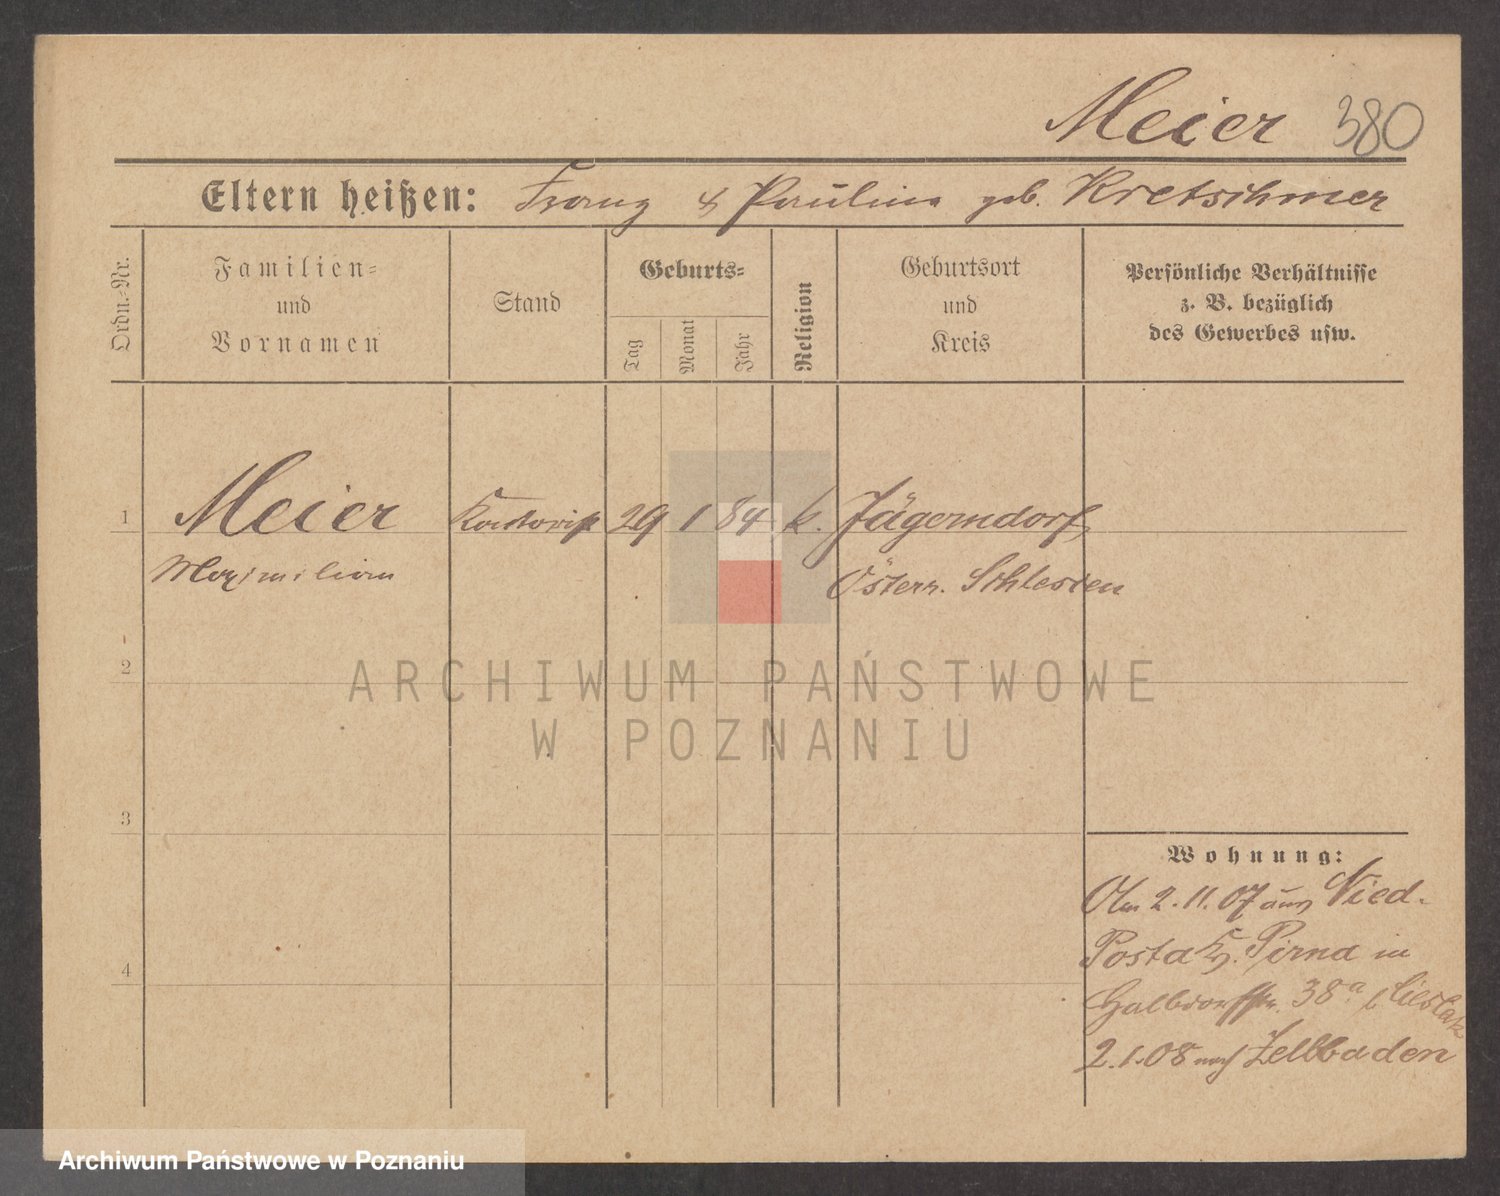 Meier 380
Eltern heißen: Franz & Paulina geb. Kretschmer
Ordn.-Nr.
Familien-
und
Vornamen
Stand
Geburts-
Tag
Monat
Jahr
Religion
Geburtsort
und
Kreis
Persönliche Verhältnisse
z. B. bezüglich
des Gewerbes usw.
1 Meier Kontorist 29 1 84 k. Jägerndorf,
Maximilian Österr. Schlesien
2
ARCHIWUM PAŃSTWOWE
W POZNANIU
3
Wohnung:
Am 2.11.07 aus Nied.
4
Posta Kr. Pirna in
Halbdorfstr. 38a b/
2.1.08 nach
Archiwum Państwowe w Poznaniu